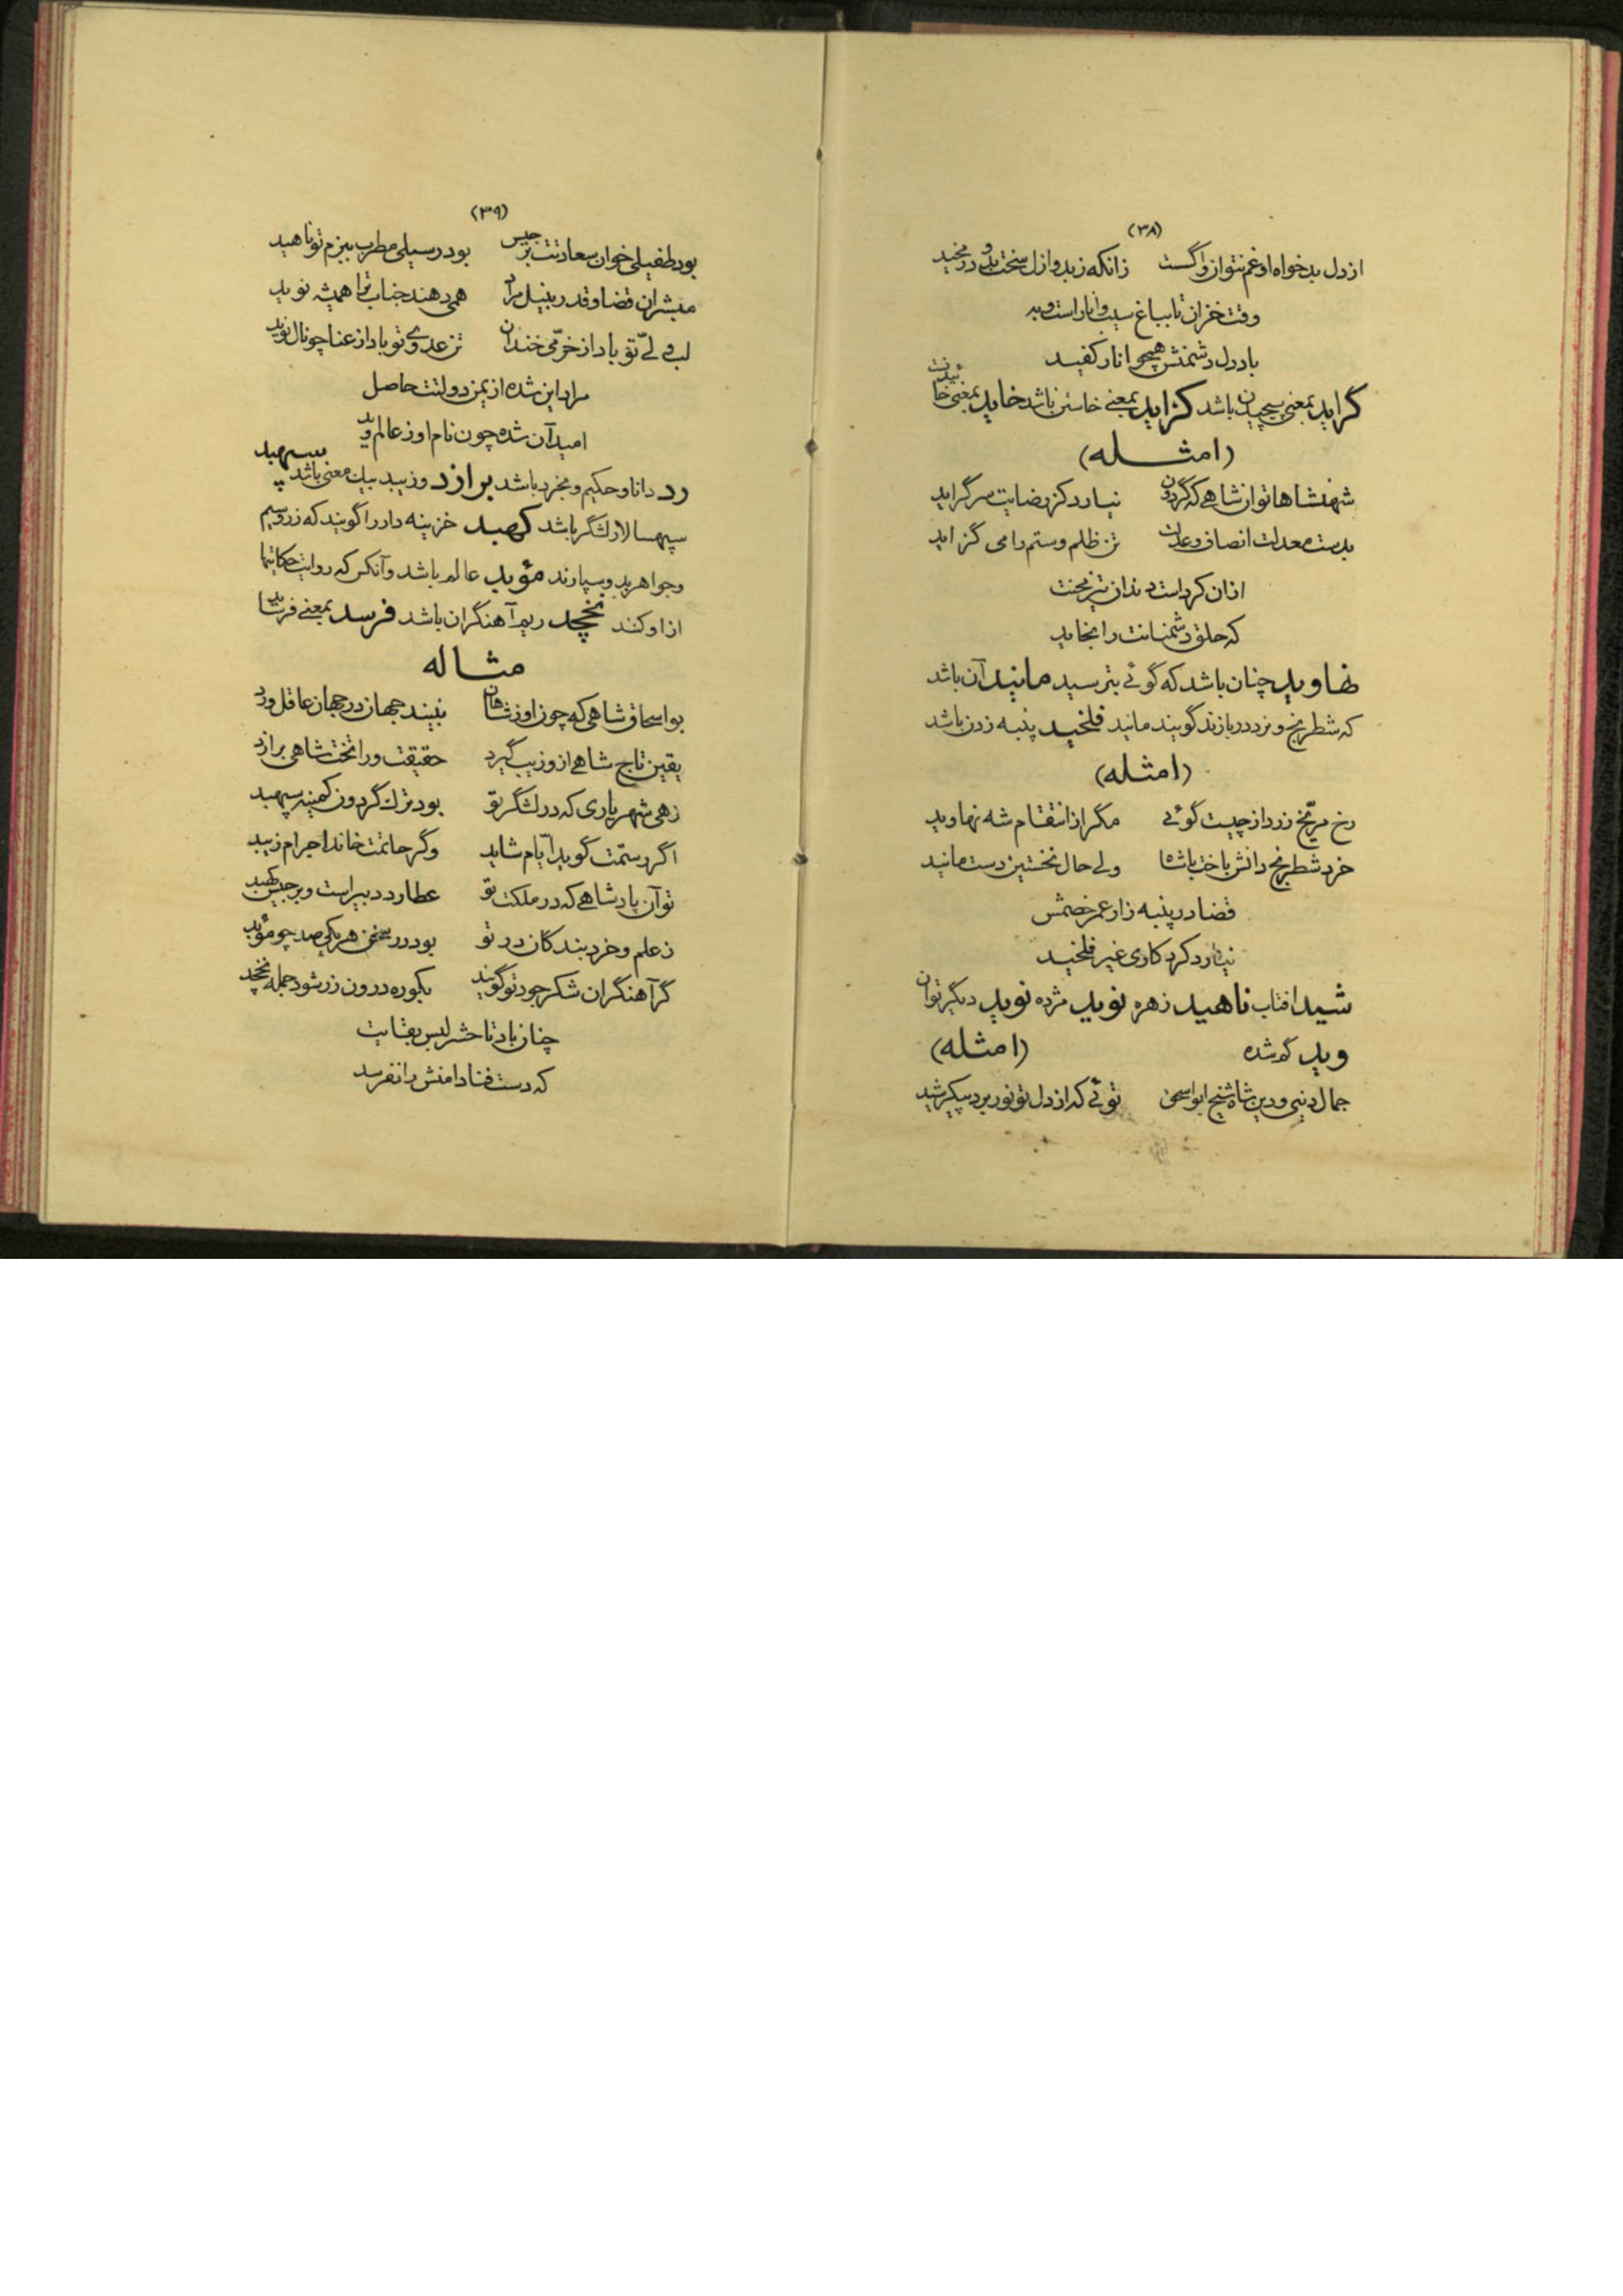 (۳۸)
از دل بدخواه او غم نتوان واگست زانکه ز بدو ازل سخت بدو در مخید
وقت خزان تا بباغ سیب و انار است و به
باد دل دشمنش همچو انار کفید
گراید بمعنی پیچیدن باشد گزاید بمعنے خاستن باشد خاید بمعنی خائیدنت
(امثـله)
شهنشاها توان شاهے که گردون نیارد کز رضایت سر گراید
بدست معدلت انصاف و عدلت تن ظلم و ستم را می گزاید
ازان کرد است دندان تیز بخت
که حلق دشمنانت را بخاید
نهاوید چنان باشد که گوئے بترسید مانید آن باشد
که شطرنج و نرد در بازند گویند مانید فلخید پنبه زدن باشد
(امثله)
رخ مرّیخ زرد از چیست گوئی مگر از انتقام شه نهاوید
خرد شطرنج دانش باخت با شاه ولے حال نخستین دست مانید
قضا در پنبه زار عمر خصمش
نیارد کرد کاری غیر فلخید
شید افتاب ناهید زهره نوید مژده نوید دیگر توان
وید گم شده (امثله)
جمال دنیی و دین شاه شیخ ابو اسحق توئے که از دل تو نور برد پیکر شید
(۳۹)
بود طفیلی خوان سعادتت برجیس بود رسیلی مطرب ببزم تو ناهید
مبشران قضا و قدر بنیل مراد همی دهند جناب ترا همیشه نوید
لب ولےّ تو باد از خرّمی خندان تن عدوے تو باد از عنا چو نال نوید
مراد این شده از یمن دولتت حاصل
امید آن شده چون نام او ز عالم وید
رد دانا و حکیم و بخرد باشد برازد و زیبد بیک معنی باشد سپهبد
سپهسالار لشگر باشد کهبد خزینه دار را گویند که زر و سیم
و جواهر بدو سپارند مؤبد عالم باشد و آنکس که روایت حکایتها
از او کنند نخچد ریم آهنگران باشد فرسد بمعنے فرساید
مثـاله
بو اسحاق شاهی که چون او ز شاهان نبیند جهان در جهان عاقل و رد
یقین تاج شاهے از و زیب گیرد حقیقت ورا تخت شاهی برازد
زهی شهریاری که در لشگر تو بود ترک گردون کمینه سپهبد
اگر رستمت گوید ایّام شاید و گر حاتمت خاند اجرام زیبد
تو آن پادشاهے که در ملکت تو عطارد دبیر است و برجیس کهبد
ز علم و خرد بندگان در تو بود در سخن هر یکی صد چو مؤبد
گر آهنگران شکر جود تو گویند بکوره درون زر شود جمله نخچد
چنان باد تا حشر لبس بقایت
که دست فنا دامنش را نفرسد